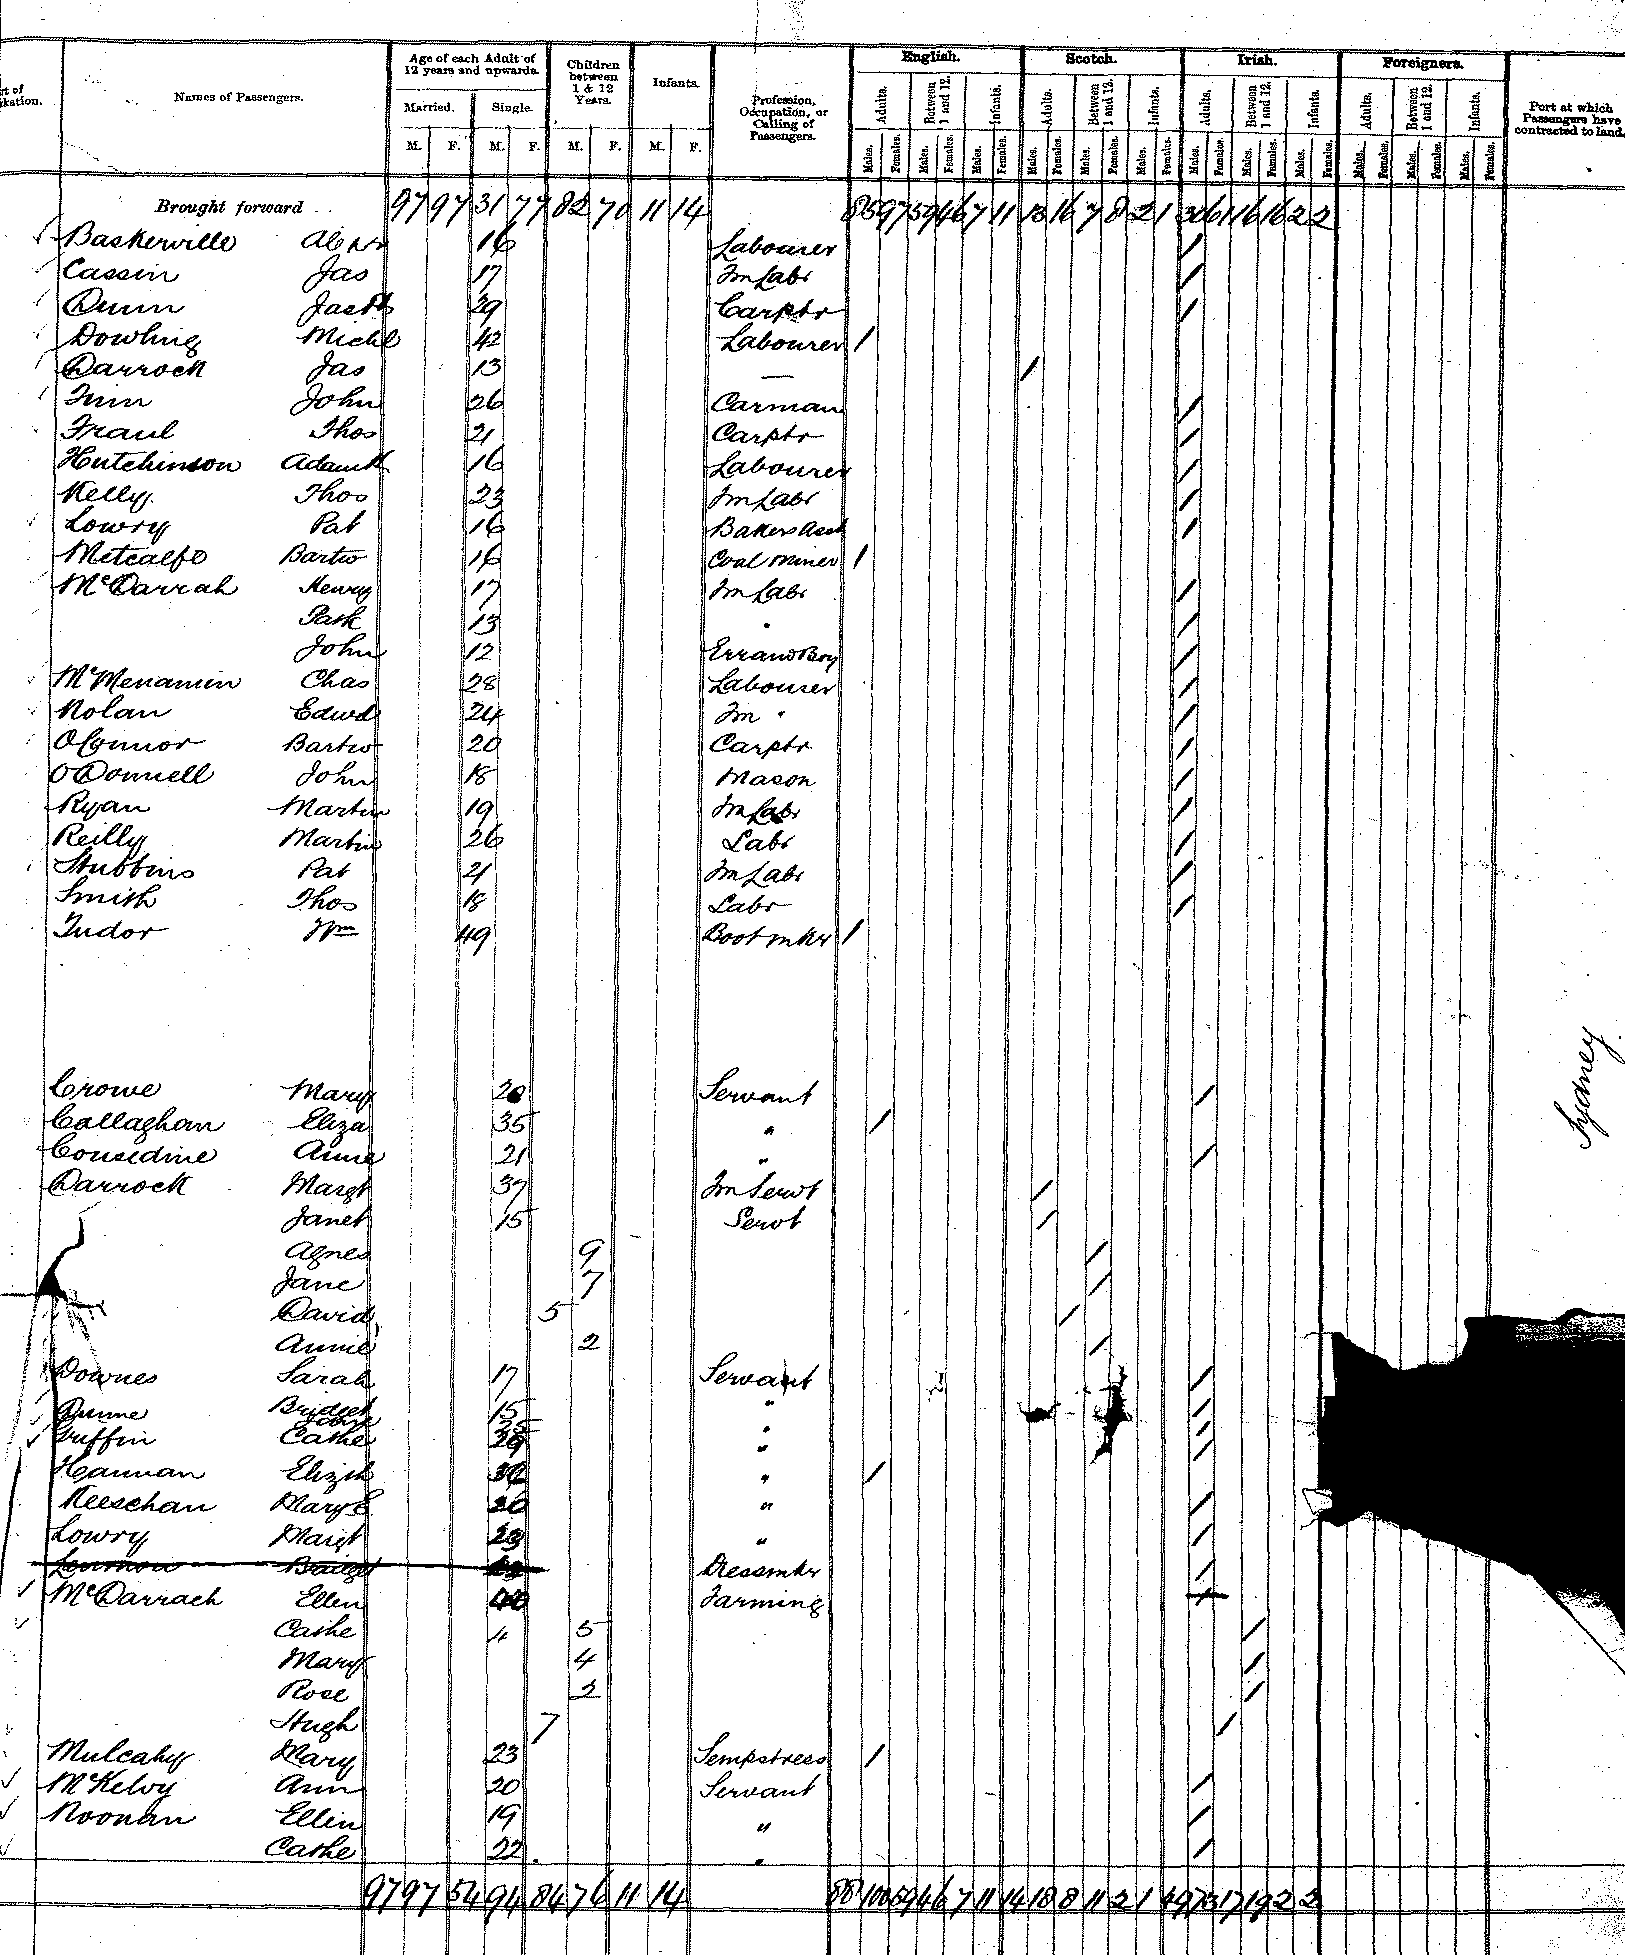 rt of
kation.
Names of Passengers.
Age of each Adult of
12 years and upwards.
Married. Single.
M. F. M. F.
Children
between
1 & 12
Years.
M. F.
Infants.
M. F.
Profession,
Occupation, or
Calling of
Passengers.
English. Scotch. Irish. Foreigners.
Adults. Between 1 and 12. Infants. Adults. Between 1 and 12. Infants. Adults. Between 1 and 12. Infants. Adults. Between 1 and 12. Infants.
Males. Females. Males. Females. Males. Females. Males. Females. Males. Females. Males. Females. Males. Females. Males. Females. Males. Females. Males. Females. Males. Females. Males. Females.
Port at which
Passengers have
contracted to land.
Brought forward 97 97 31 77 82 70 11 14 85 97 59 46 7 11 13 16 7 8 2 1 30 61 16 16 2 2
Baskerville 16 Labourer /
Cassin Jas 17 Fm Labr /
Dunn 29 Carptr /
Dowling Michl 42 Labourer /
Darrock Jas 13 — /
Finn John 26 Carman /
Fraul Thos 21 Carptr /
Hutchinson Adam 16 Labourer /
Kelly. Thos 23 Fm Labr /
Lowry Pat 16 Bakers Asst /
Metcalfe Bartw 16 Coal Miner /
McDarrah Henry 17 Fm Labr /
Patk 13 " /
John 12 Errand Boy /
McMenamin Chas 28 Labourer /
Nolan Edwd 24 Fm " /
O'Connor Bartw 20 Carptr /
O'Donnell John 18 Mason /
Ryan Martin 19 Fm Labr /
Reilly Martin 26 Labr /
Stubbins Pat 21 Fm Labr /
Smith Thos 18 Labr /
Tudor Wm 49 Boot mkr /
Crowe Mary 20 Servant /
Callaghan Eliza 35 " /
Considine Anne 21 " /
Darrock Margt 37 Fm Servt /
Janet 15 Servt /
Agnes 9 /
Jane 7 /
David 5 /
Annie 2 /
Downes Sarah 17 Servant /
Dunne Bridget 15 " /
" /
Griffin Cathe " /
Hannan Elizth " /
Keeshan Mary E 20 " /
Lowry Margt 23 " /
Lennon Bridgt Dressmkr /
McDarrach Ellen 40 Farming /
Cathe 5 /
Mary 4 /
Rose 2 /
Hugh 7 /
Mulcahy Mary 23 Sempstress /
McKelvy Ann 20 Servant /
Noonan Ellen 19 " /
Cathe 22 " /
97 97 54 94 84 76 11 14 88 100 59 46 7 11 14 18 8 11 2 1 49 73 17 19 2 2
Sydney